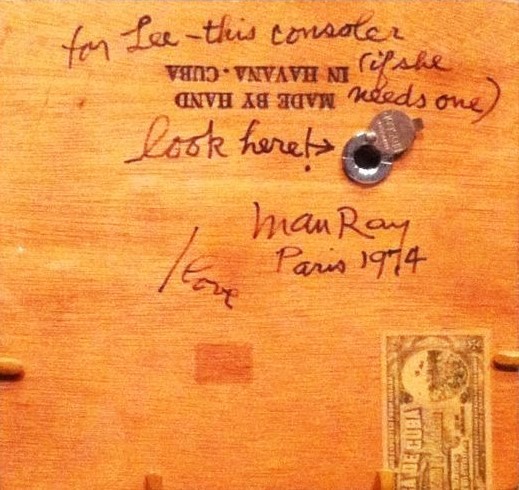 for Lee - this consoler
(if she
needs one)
MADE BY HAND
IN HAVANA · CUBA
look here!→
Man Ray
Paris 1974
/love
A DE CUBA